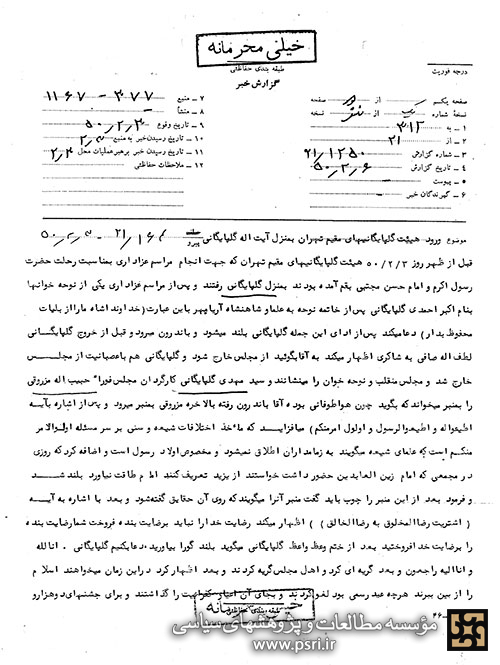 خیلی محرمانه
طبقه بندی حفاظتی
گزارش خبر
درجه فوریت
صفحه یکم از صفحه
نسخه شماره یک از نسخه
۱ ـ به ۳۱۲
۲ ـ از ۲۱
۳ ـ شماره گزارش ۲۱/۱۲۵۰
۴ ـ تاریخ گزارش ۵۰/۲/۶
۵ ـ پیوست
۶ ـ گیرندگان خبر
۷ ـ منبع ۳۷۷ - ۱۱۶۷
۸ ـ منشأ
۹ ـ تاریخ وقوع ۵۰/۲/۳
۱۰ ـ تاریخ رسیدن خبر به منبع ۲/۳
۱۱ ـ تاریخ رسیدن خبر برهبر عملیات محل ۲/۴
۱۲ ـ ملاحظات حفاظتی
موضوع ورود هیئت گلپایگانیهای مقیم تهران بمنزل آیت اله گلپایگانی پیرو
قبل از ظهر روز ۵۰/۲/۳ هیئت گلپایگانیهای مقیم تهران که جهت انجام مراسم عزاداری بمناسبت رحلت حضرت
رسول اکرم و امام حسن مجتبی بقم آمده بودند بمنزل گلپایگانی رفتند و پس از مراسم عزاداری یکی از نوحه خوانها
بنام اکبر احمدی گلپایگانی پس از خاتمه نوحه به علما و شاهنشاه آریامهر با این عبارت (خداوند اشاه مارا از بلیات
محفوظ بدار) دعا میکند پس از ادای این جمله گلپایگانی بلند میشود و باندرون میرود و قبل از خروج گلپایگانی
لطف اله صافی به شاکری اظهار میکند به آقا بگوئید از مجلس خارج شود و گلپایگانی هم با عصبانیت از مجلس
خارج شد و مجلس منقلب و نوحه خوان را مینشانند و سید مهدی گلپایگانی کارگردان مجلس فورا" حبیب اله مرزوقی
را بمنبر میخواند که بگوید چون هوا طوفانی بوده آقا باندرون رفته بالاخره مرزوقی بمنبر میرود و پس از اشاره بآیه
(اطیعواله و اطیعوالرسول و اولول امرمنکم) میافزاید که ماخذ اختلافات شیعه و سنی بر سر مسئله اولوالامر
منکم است که علمای شیعه میگویند به زمامداران اطلاق نمیشود و مخصوص اولاد رسول است و اضافه کرد که روزی
در مجمعی که امام زین العابدین حضور داشت خواستند از یزید تعریف کنند امام طاقت نیاورد بلند شد
و فرمود بعد از این منبر را چوب باید گفت منبر آنرا میگویند که روی آن حقایق گفته شود و بعد با اشاره به آیه
(اشتریت رضا المخلوق به رضا الخالق) اظهار میکند رضایت خدا را نباید برضایت بنده فروخت شما رضایت بنده
را برضایت خدا فروختید بعد از ختم وعظ واعظ گلپایگانی میگوید بلند گورا بیاورید دعا بکنیم گلپایگانی . انا لله
و انا الیه راجعون و بعد گریه ای کرد و اهل مجلس گریه کردند و بعد اظهار کرد در این زمان میخواهند اسلام
را از بین ببرند هرچه عید رسمی بود لغو کردند و بجای آن اعیاد را گذاشتند و برای جشنهای دوهزار و
خیلی محرمانه
طبقه بندی حفاظتی
مؤسسه مطالعات و پژوهشهای سیاسی
www.psri.ir